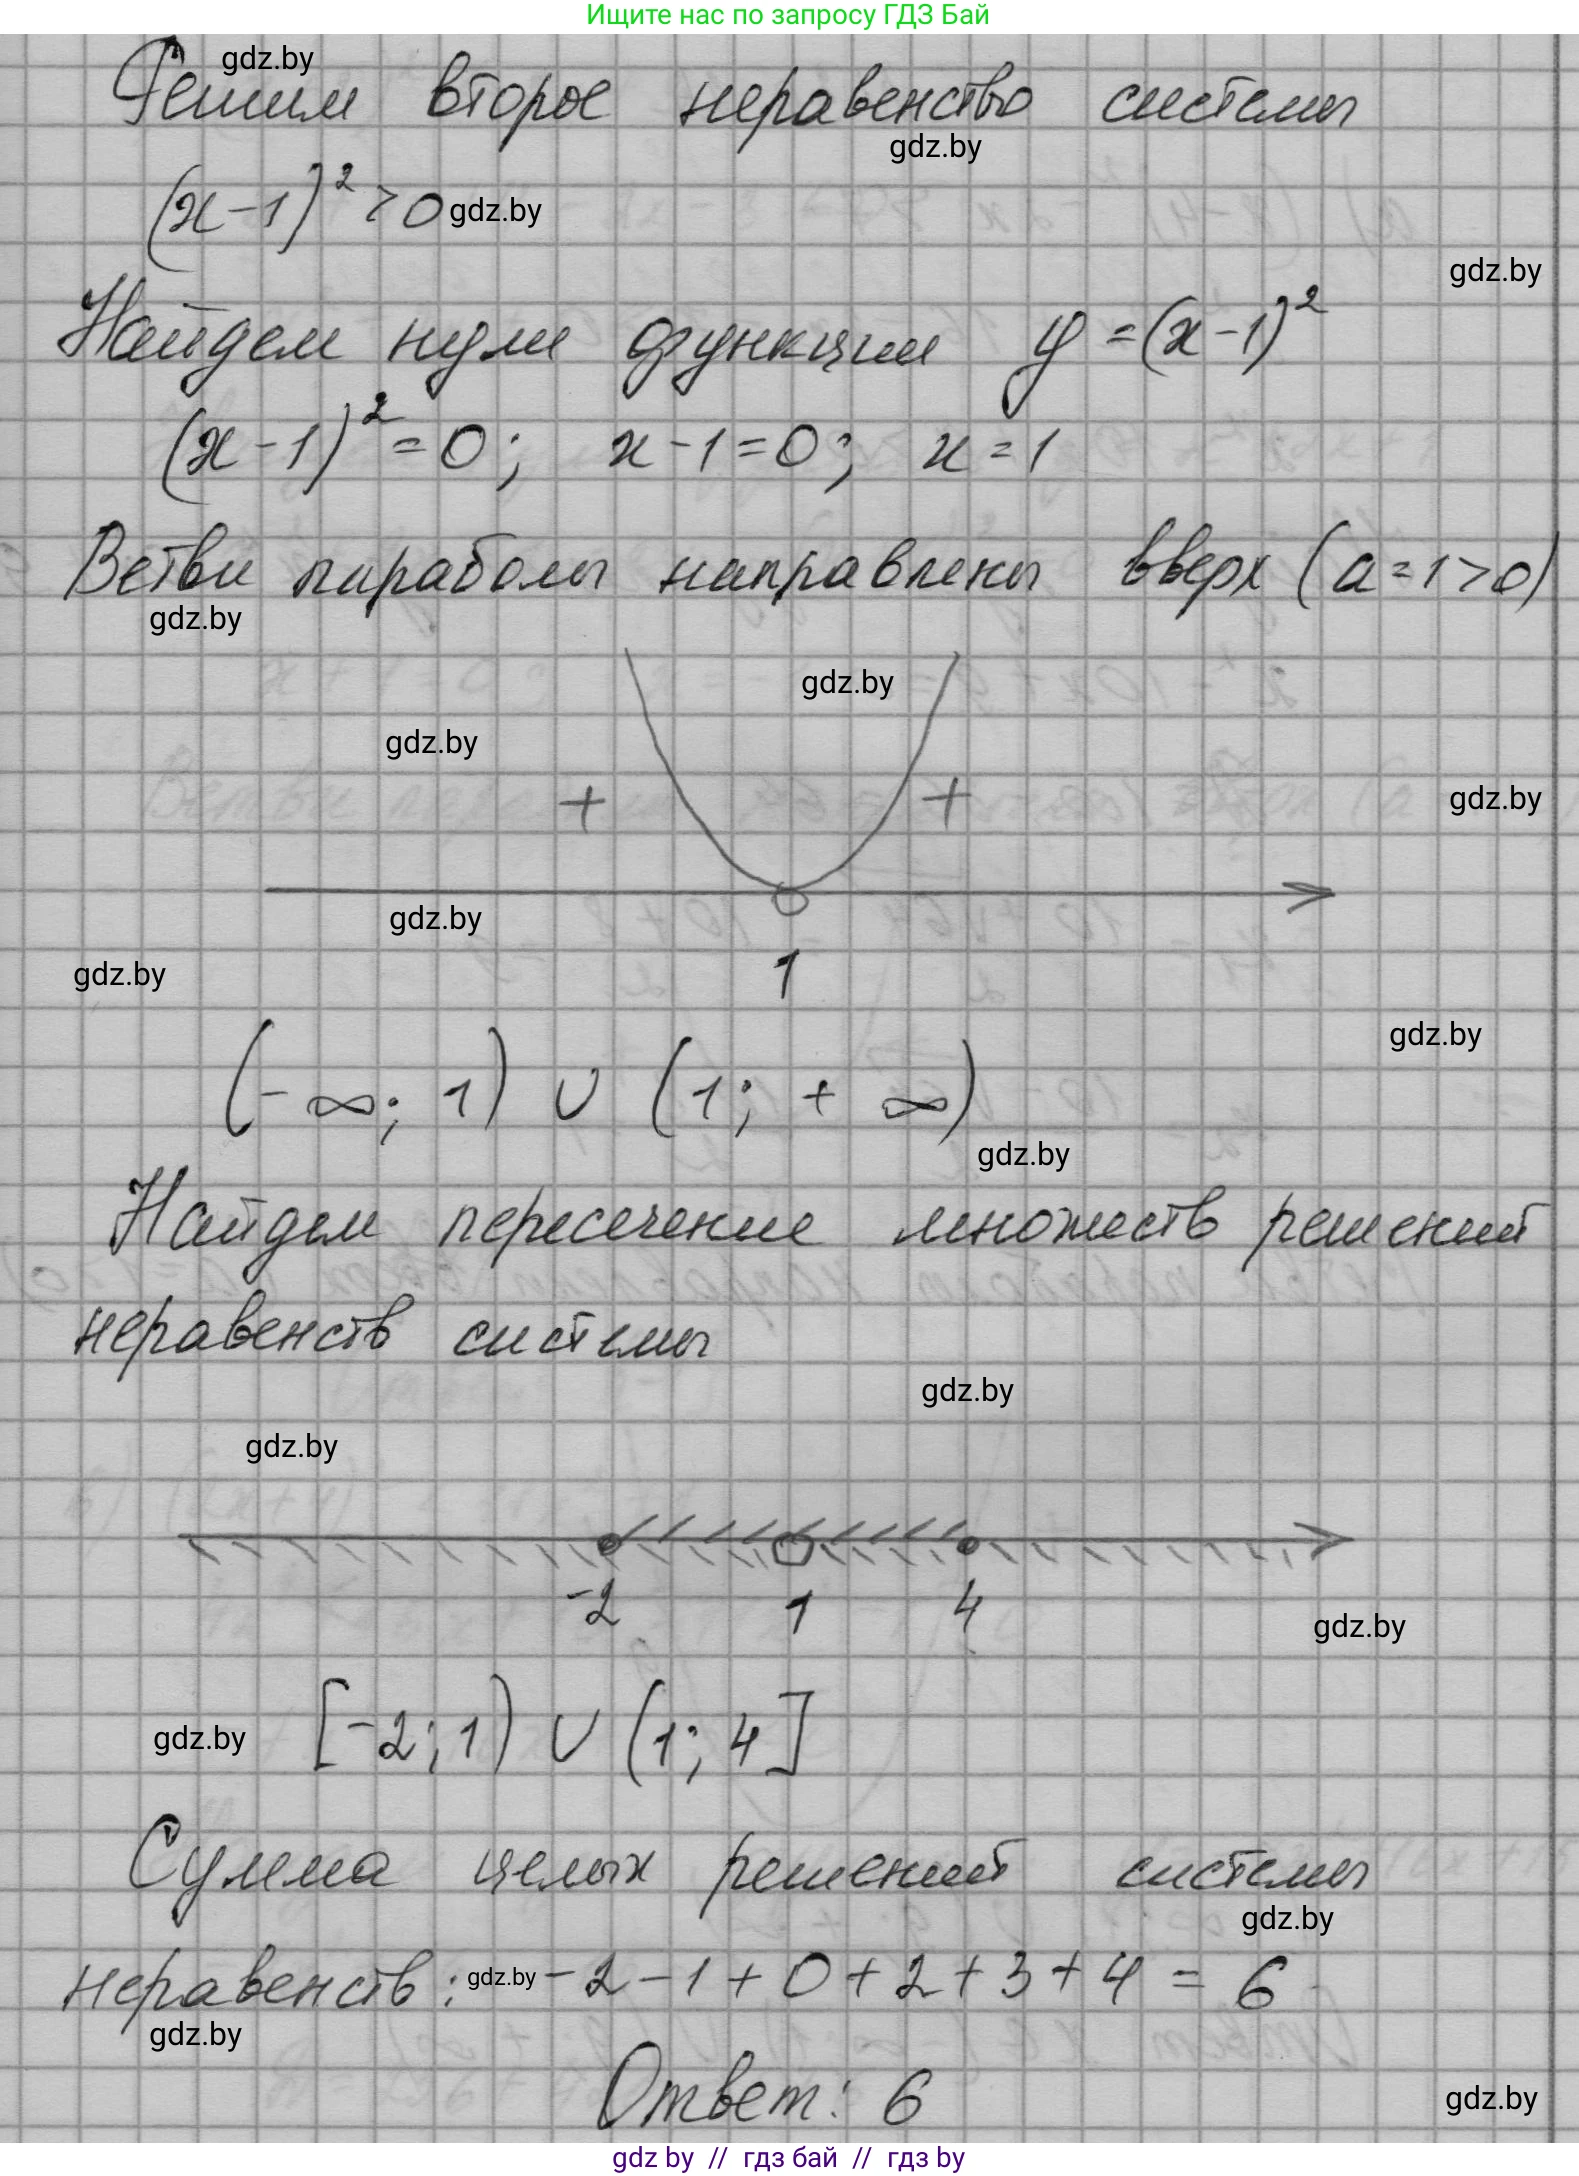 Ищите нас по запросу ГДЗ Бай
gdz.by
Решим второе неравенство системы
gdz.by
(x-1)² > 0 gdz.by
gdz.by
Найдем нули функции y = (x-1)²
(x-1)² = 0; x-1=0; x=1
Ветви параболы направлены вверх (a=1>0)
gdz.by
gdz.by
gdz.by
+ +
gdz.by
gdz.by
gdz.by
1
gdz.by
(-∞; 1) ∪ (1; +∞)
gdz.by
Найдем пересечение множеств решений
неравенств системы
gdz.by
gdz.by
-2 1 4
gdz.by
gdz.by [-2; 1) ∪ (1; 4]
Сумма целых решений системы
gdz.by
неравенств: gdz.by -2-1+0+2+3+4=6
gdz.by
Ответ: 6
gdz.by
gdz by // гдз бай // гдз by